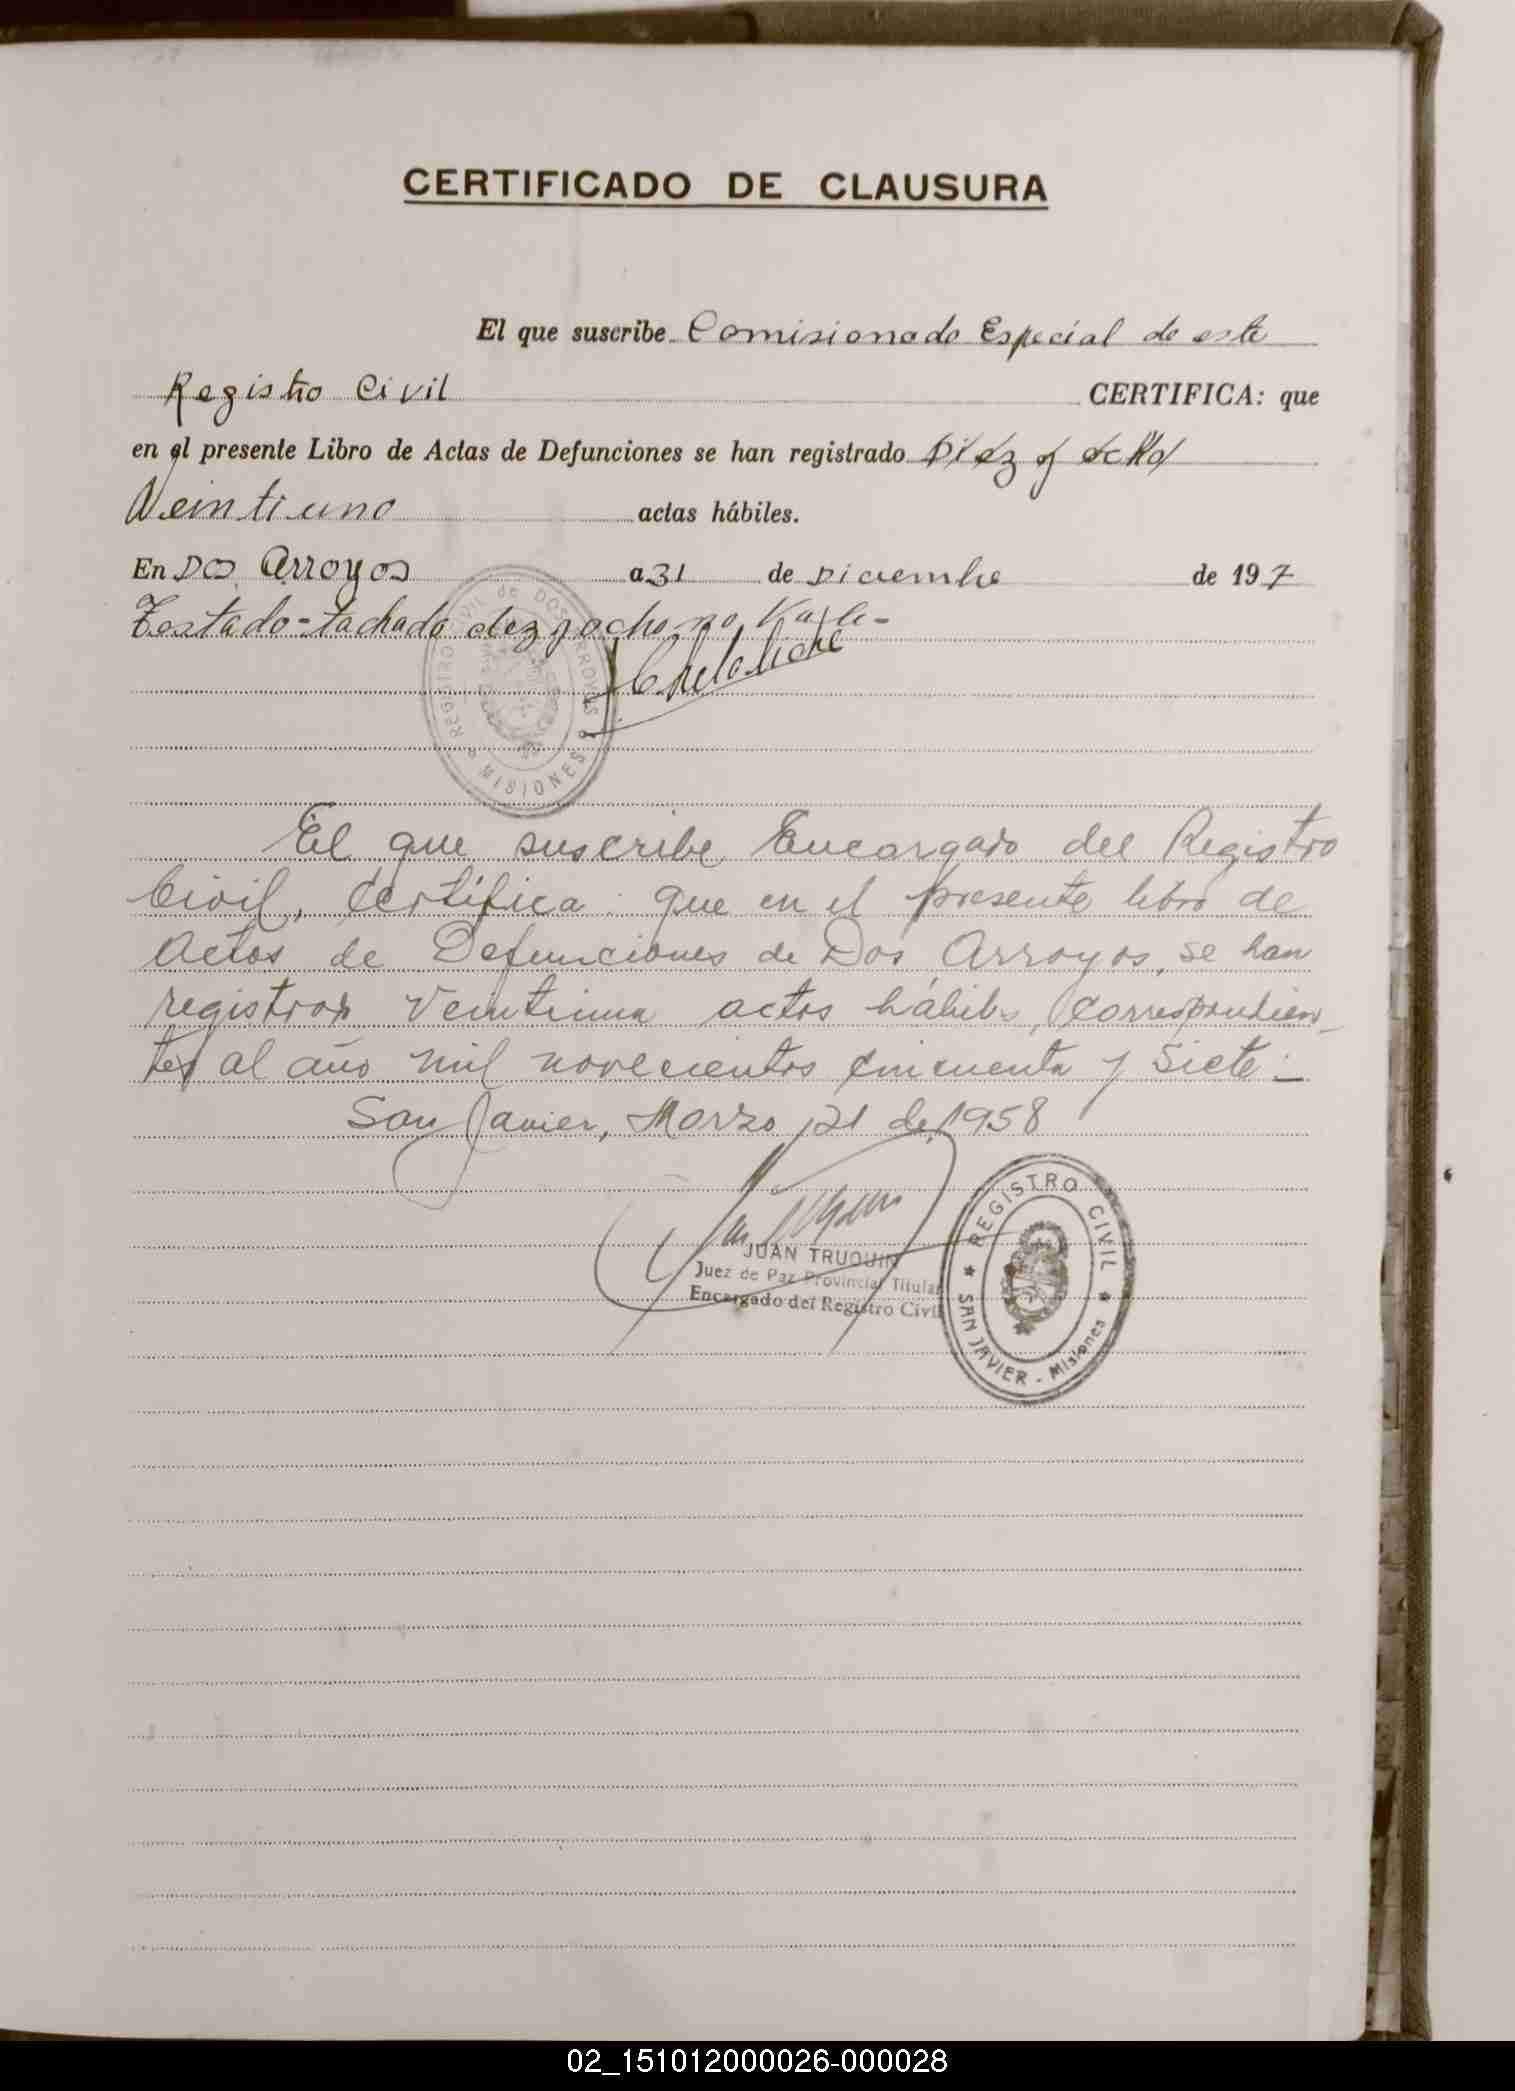 CERTIFICADO DE CLAUSURA
El que suscribe Comisionado Especial de este
Registro Civil CERTIFICA: que
en el presente Libro de Actas de Defunciones se han registrado Diez y ocho
Veintiuno actas hábiles.
En Dos Arroyos a 31 de Diciembre de 197
Testado-tachado diez y ocho no Vale-
REGISTRO CIVIL de DOS ARROYOS
MISIONES
El que suscribe Encargado del Registro
Civil, Certifica: que en el presente libro de
Actas de Defunciones de Dos Arroyos, se han
registros Veintiuna actas hábiles, correspondien-
tes al año mil novecientos cincuenta y siete:-
San Javier, Marzo 21 de 1958
JUAN TRUQUIN
Juez de Paz Provincial Titular
Encargado del Registro Civil
REGISTRO CIVIL
SAN JAVIER - Misiones
02_151012000026-000028